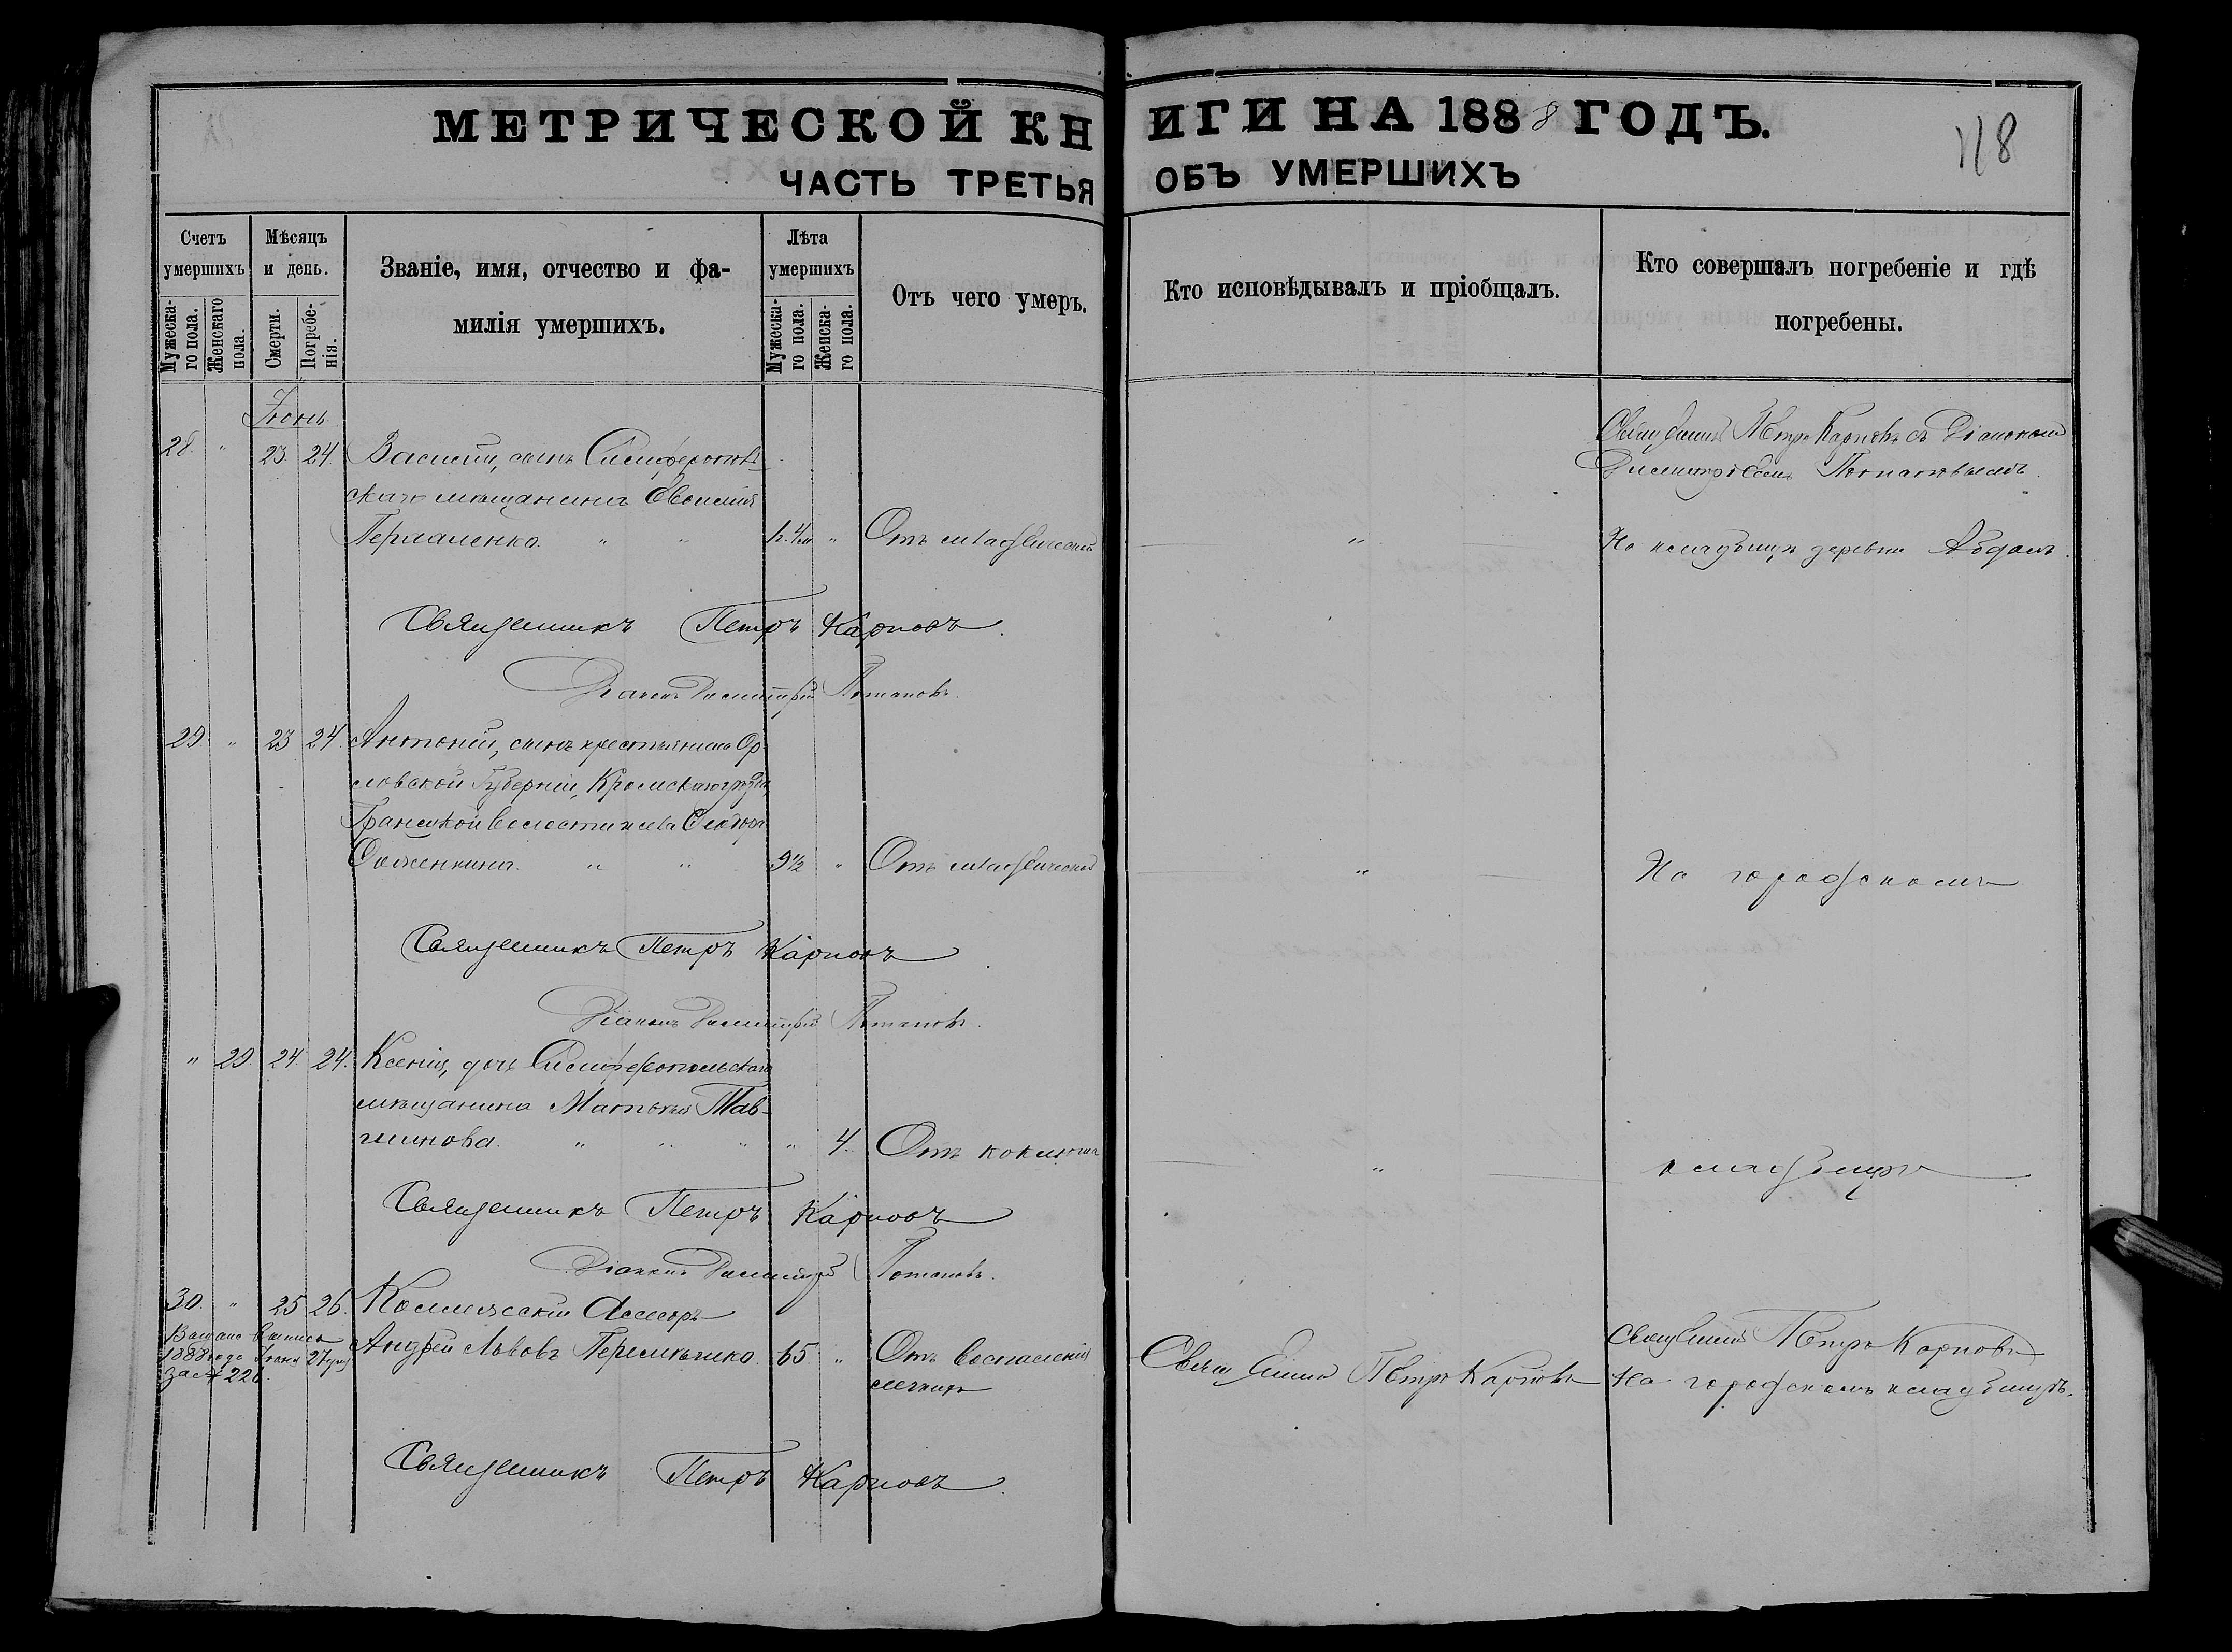 МЕТРИЧЕСКОЙ КНИГИ НА 1888 ГОДЪ.
118
ЧАСТЬ ТРЕТЬЯ ОБЪ УМЕРШИХЪ
Счетъ умершихъ
Мужеска-
го пола.
Женскаго
пола.
Мѣсяцъ
и день.
Смерти.
Погребе-
нія.
Званіе, имя, отчество и фа-
милія умершихъ.
Лѣта
умершихъ
Мужеска-
го пола.
Женска-
го пола.
Отъ чего умеръ.
Кто исповѣдывалъ и пріобщалъ.
Кто совершалъ погребеніе и гдѣ
погребены.
Іюнь
28. " 23 24. Василій, сынъ Симферополь-
скаго мѣщанина
" " " Отъ младенческой
"
Священникъ Петръ Карповъ съ Діакономъ
Димитріемъ Потаповымъ.
На кладбищѣ деревни Абдалъ.
Священникъ Петръ Карповъ.
Діаконъ Димитрій Потаповъ.
29 " 23 24. Антоній, сынъ крестьянина Ор-
ловской Губерніи, Кромскаго уѣзда,
волости и села
" " 9½ " Отъ младенческой
"
На городскомъ
Священникъ Петръ Карповъ.
Діаконъ Димитрій Потаповъ.
" 29. 24. 24. Ксенія, дочь Симферопольскаго
мѣщанина Матвѣя Тав-
" " " " 4. Отъ коклюша
"
кладбищѣ
Священникъ Петръ Карповъ
Діаконъ Димитрій Потаповъ.
30. " 25 26. Коллежскій Ассесоръ
Андрей Львовъ 65. " Отъ воспаленія
легкихъ
1888 года Іюня 27 дня
за № 226.
Священникъ Петръ Карповъ
Священникъ Петръ Карповъ
На городскомъ кладбищѣ.
Священникъ Петръ Карповъ.